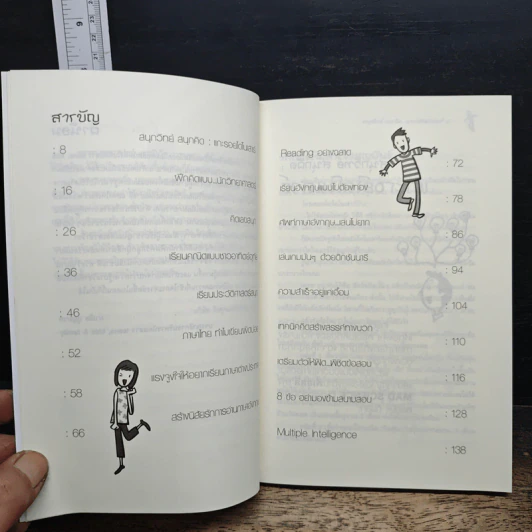 สารบัญ
สนุกวิทย์ สนุกคิด : แกะรอยไดโนเสาร์
: 8
ฝึกคิดแบบ...นักวิทยาศาสตร์
: 16
: 26
เรียนคณิตแบบชาวอาทิตย์อุทัย
: 36
เรียนประวัติศาสตร์
: 46
ภาษาไทย ทำไมเขียน
: 52
แรงจูงใจให้อยากเรียนภาษาต่างประเทศ
: 58
สร้างนิสัยรักการอ่านภาษาอังกฤษ
: 66
Reading อย่างฉลาด
: 72
เรียนอังกฤษแบบไม่ต้องท่อง
: 78
ศัพท์ภาษาอังกฤษ...เล่นไม่ยาก
: 86
เล่นเกมมันๆ ด้วยดิกชันนารี
: 94
ความสำเร็จอยู่แค่เอื้อม
: 104
เทคนิคคิดสร้างสรรค์ทางบวก
: 110
เตรียมตัวให้ฟิต...พิชิตข้อสอบ
: 116
8 ข้อ อย่ามองข้ามสนามสอบ
: 128
Multiple Intelligence
: 138